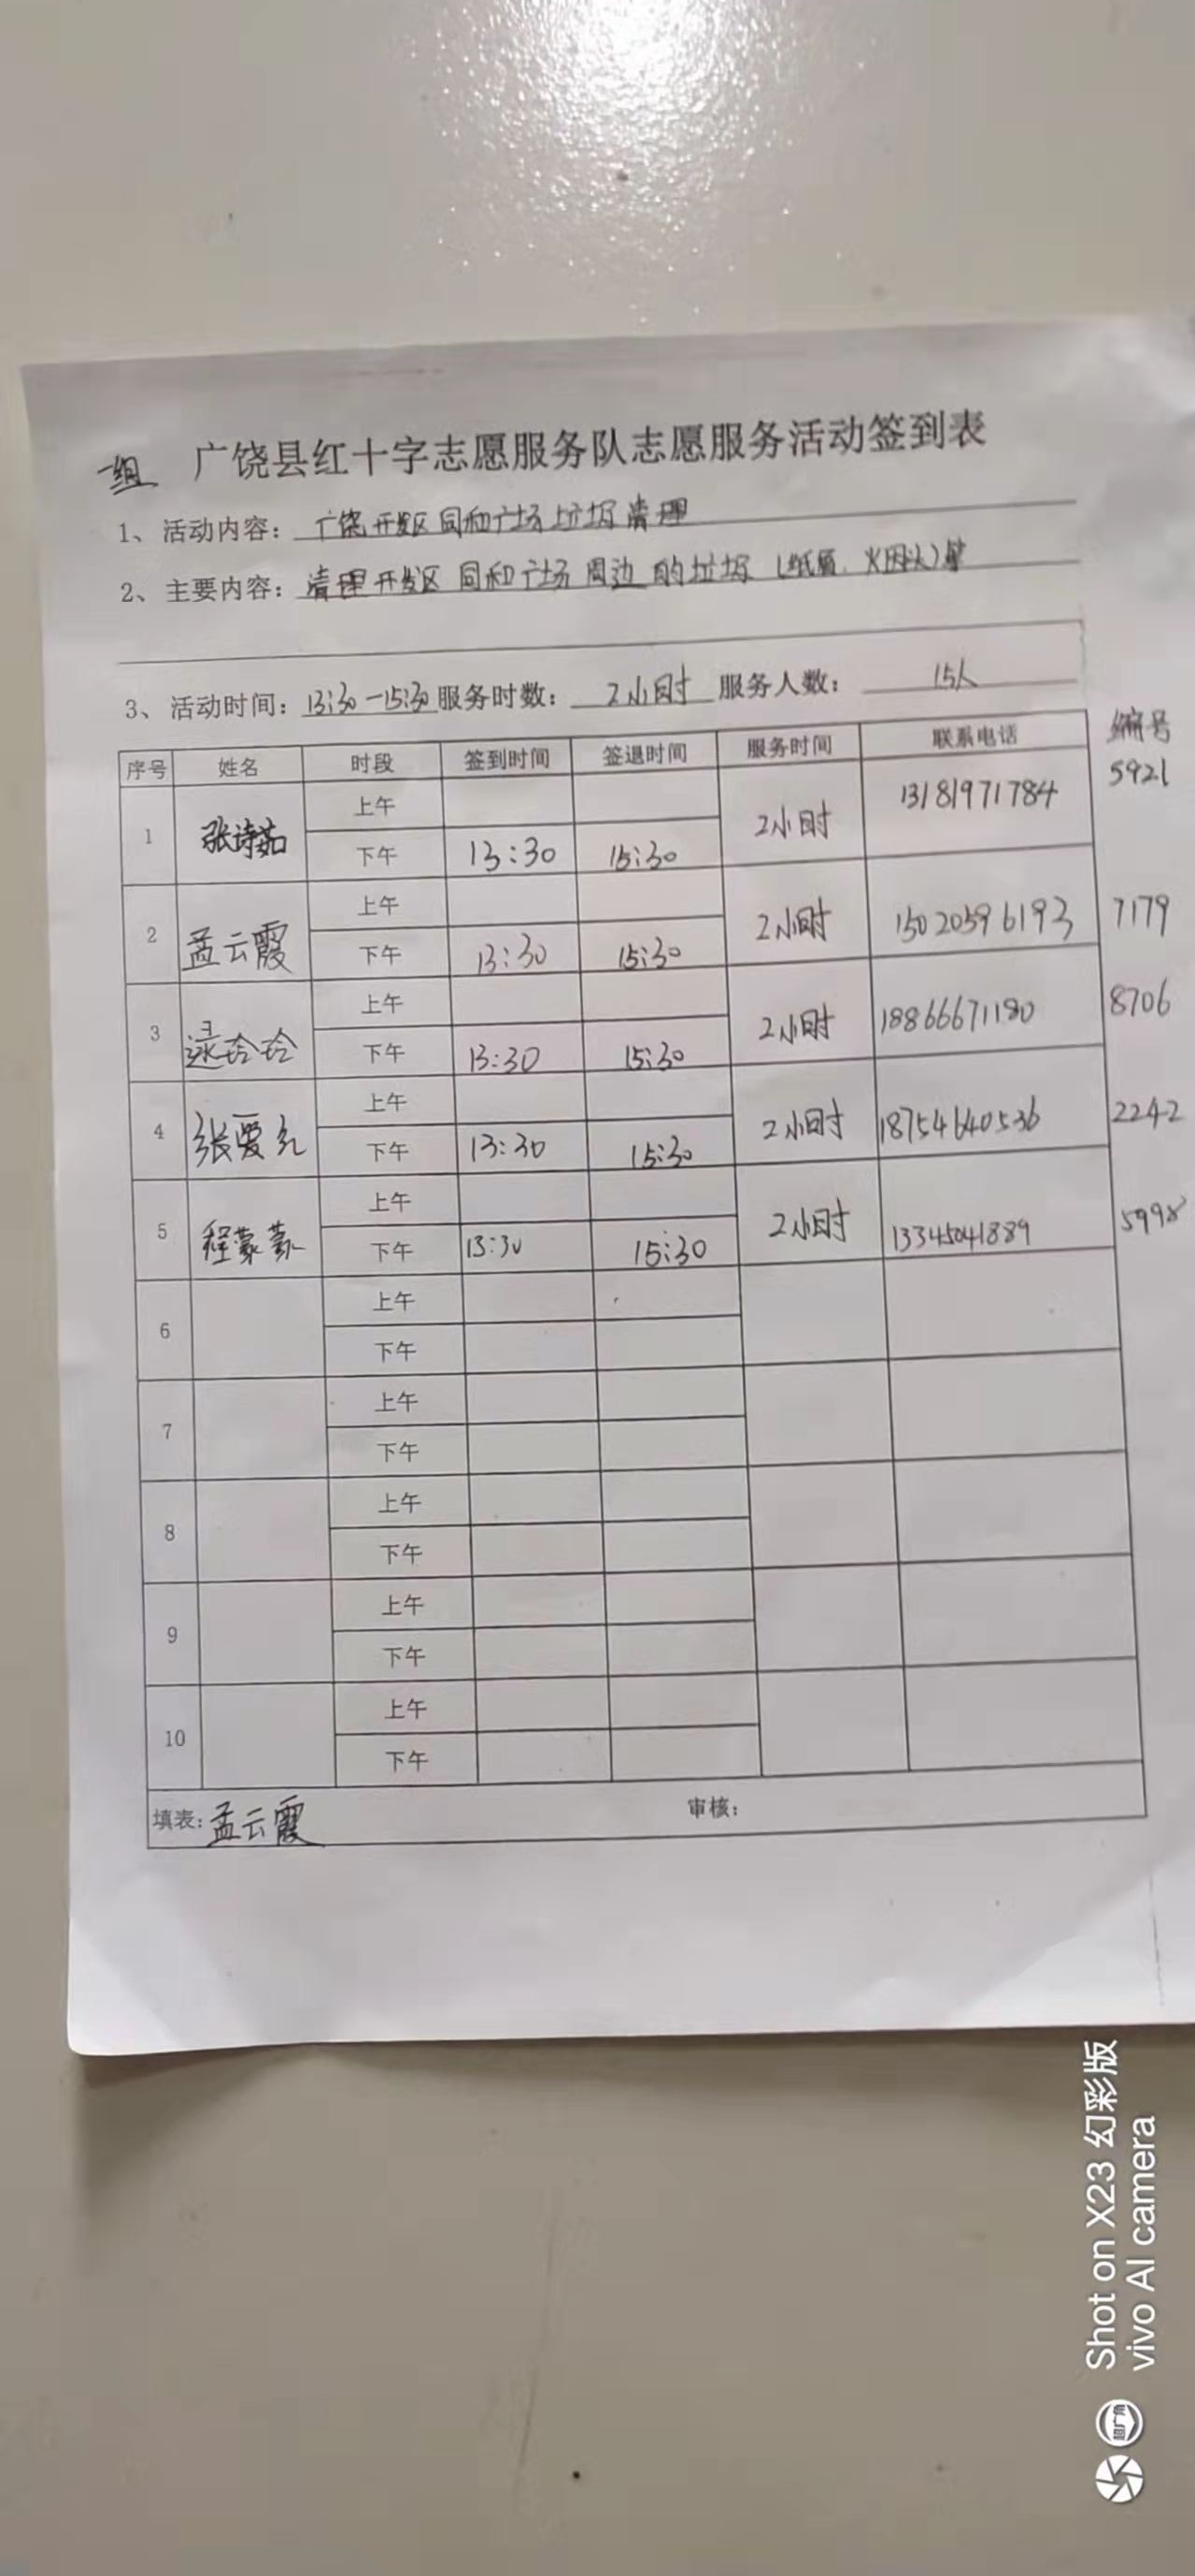 一组 广饶县红十字志愿服务队志愿服务活动签到表
1、活动内容：广饶开发区同和广场垃圾清理
2、主要内容：清理开发区同和广场周边的垃圾（纸屑、火因头）等
3、活动时间：13:30-15:30 服务时数：2小时 服务人数：15人
序号 姓名 时段 签到时间 签退时间 服务时间 联系电话 编号
1 张诗茹 上午 2小时 13181971784 5921
下午 13:30 15:30
2 孟云霞 上午 2小时 15020596193 7179
下午 13:30 15:30
3 逯玲玲 上午 2小时 18866671180 8706
下午 13:30 15:30
4 张爱 上午 2小时 18754640536 2242
下午 13:30 15:30
5 程蒙蒙 上午 2小时 13345041889 5998
下午 13:30 15:30
6 上午
下午
7 上午
下午
8 上午
下午
9 上午
下午
10 上午
下午
填表：孟云霞 审核：
Shot on X23 幻彩版
vivo AI camera
超广角